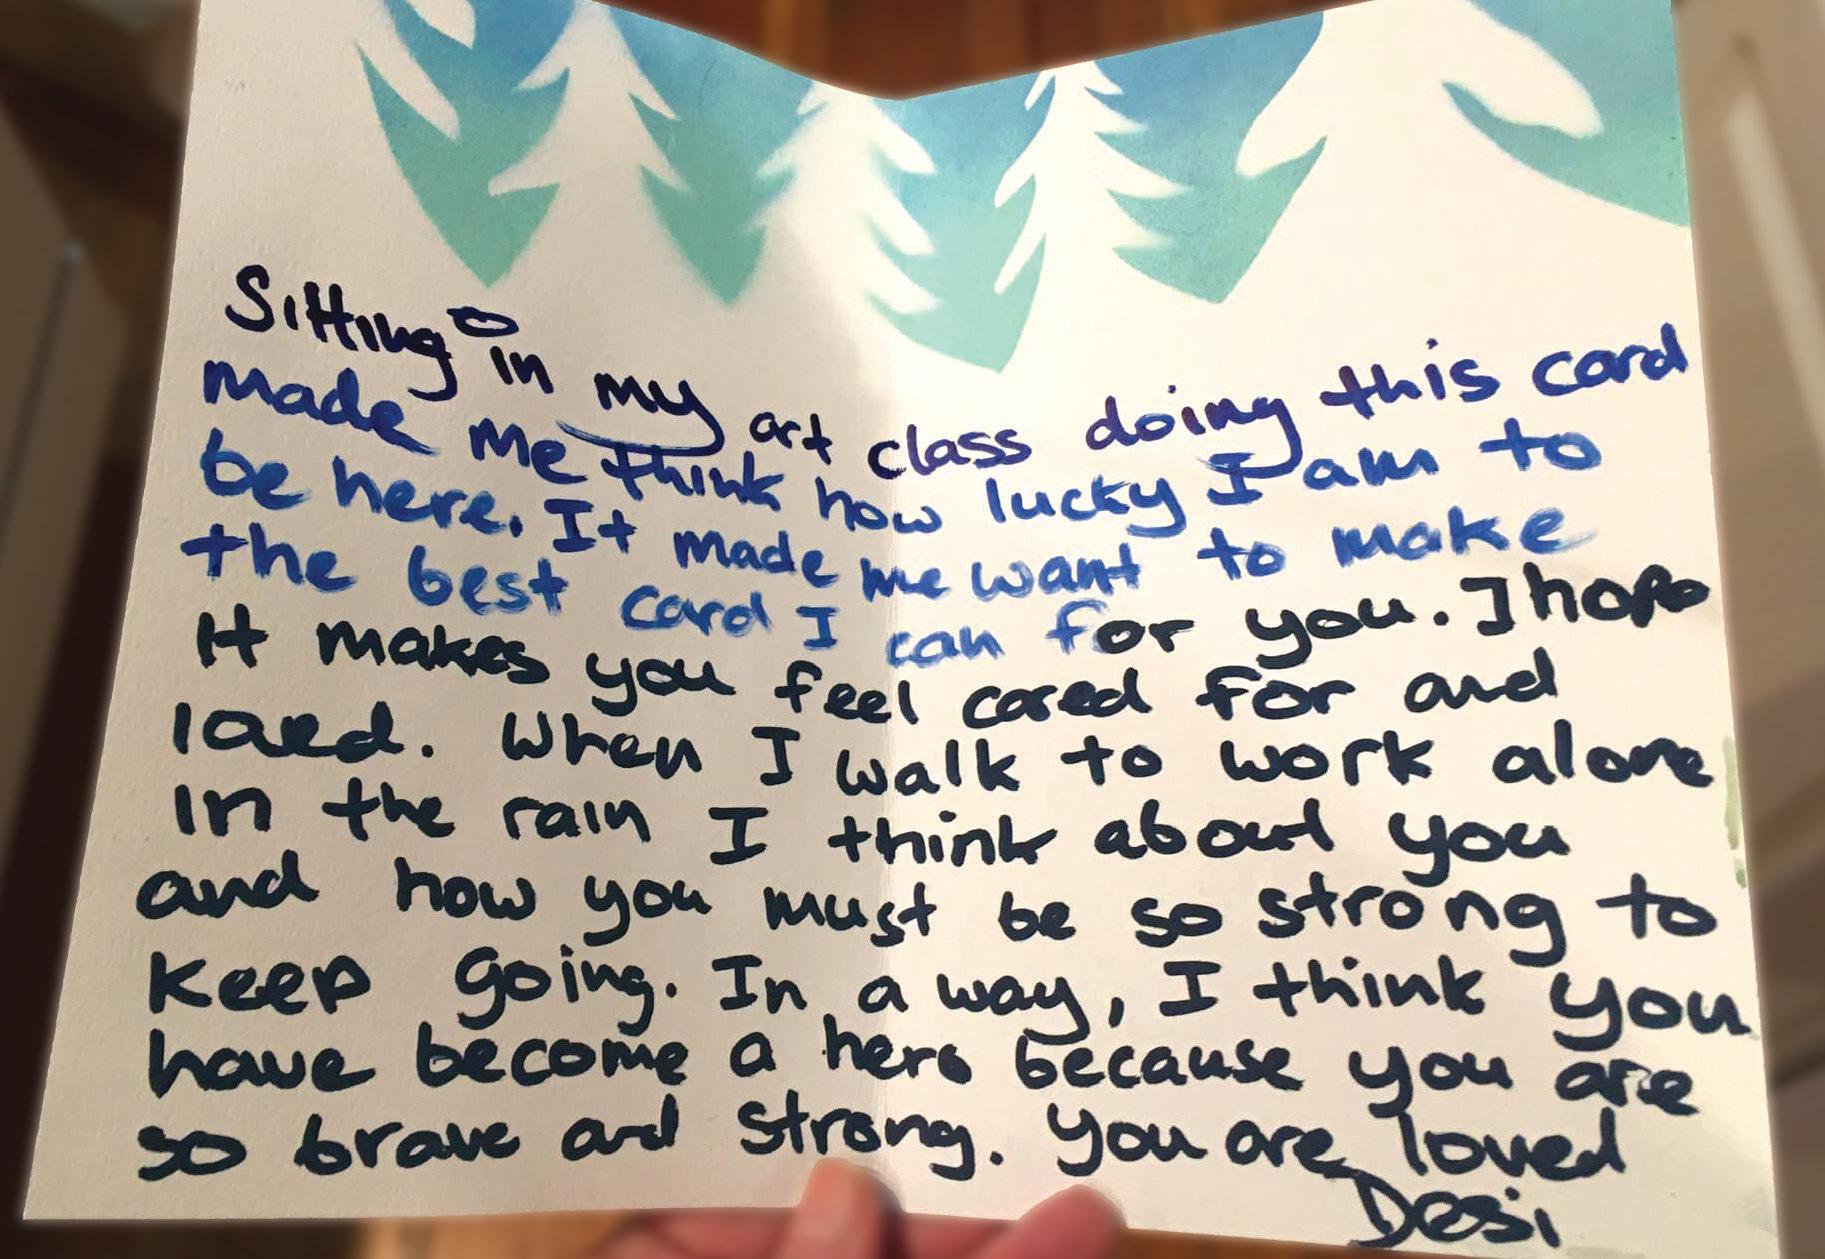 Sitting in my art class doing this card
made me think how lucky I am to
be here. It made me want to make
the best card I can for you. I hope
it makes you feel cared for and
loved. When I walk to work alone
in the rain I think about you
and how you must be so strong to
keep going. In a way, I think you
have become a hero because you are
so brave and strong. You are loved
Desi